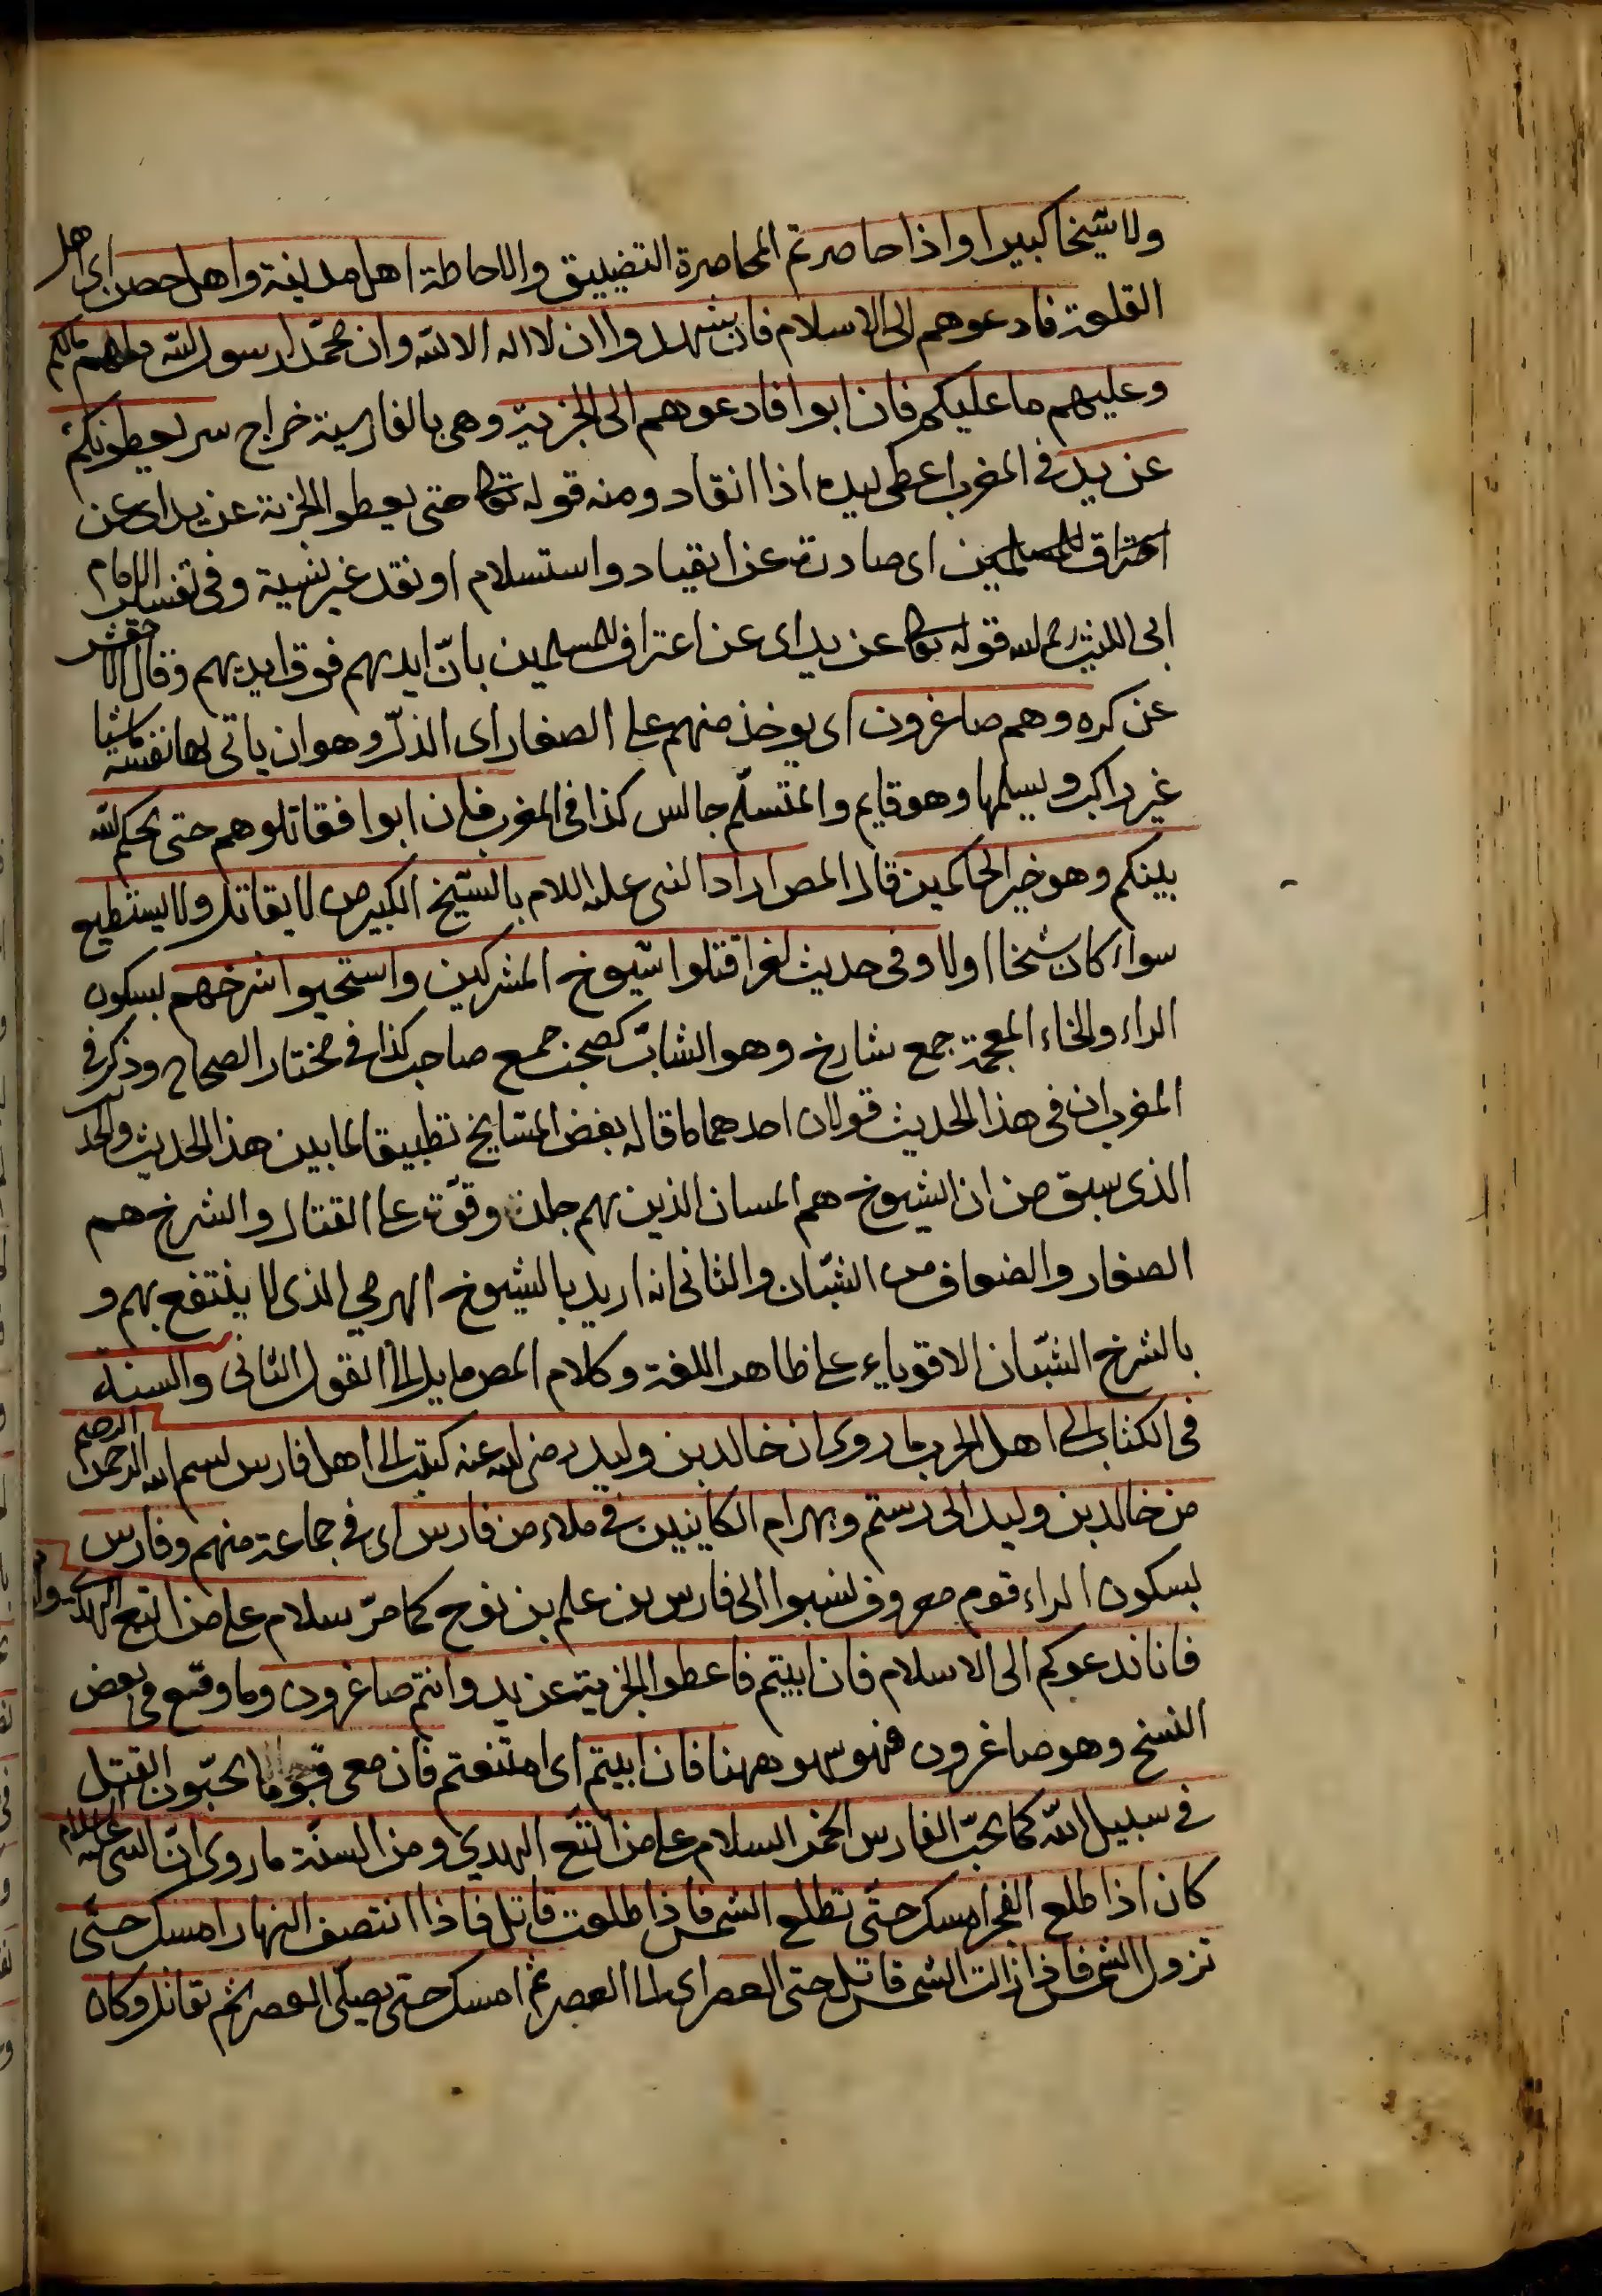 ولا شيخا كبيرا واذا حاصرتم المحاصرة التضييق والاحاطة اهل مدينة واهل حصن اى اهل
القلعة فادعوهم الى الاسلام فان شهدوا ان لا اله الا الله وان محمّدا رسول الله فلهم مالكم
وعليهم ما عليكم فان ابوا فادعوهم الى الجزية وهى بالفارسية خراج سر يعطونكم
عن يد فى المغرب اعطى بيده اذا انقاد ومنه قوله تعا حتى يعطوا الجزية عن يد اى عن
اى صادرة عن انقياد واستسلام او نقد غير نسية وفى تفسير الامام
ابى الليث رحم الله قوله تعا عن يد اى عن اعتراف للمسلمين بانّ ايديهم فوق ايديهم وقال الاخفش
عن كره وهم صاغرون اى يوخذ منهم على الصغار اى الذلّ وهو ان ياتى بها بنفسه ماشيا
غير راكب ويسلمها وهو قايم والمتسلّم جالس كذا فى المغرب فان ابوا فقاتلوهم حتى يحكم الله
بينكم وهو خير الحاكمين قال المص اراد النبى عليه السلام بالشيخ الكبير من لا يقاتل ولا يستطيع
سواء كان شخا اولا وفى حديث اخر اقتلوا شيوخ المشركين واستحيوا شرخهم بسكون
الراء والخاء المعجمة جمع شارخ وهو الشابّ كصحب جمع صاحب كذا فى مختار الصحاح وذكر فى
المغرب ان فى هذا الحديث قولان احدهما ما قاله بعض المشايخ تطبيقا لما بين هذا الحديث والحديث
الذى سبق من ان الشيوخ هم المسان الذين بهم جلد وقوّة على القتال والشرخ هم
الصغار والضعاف من الشبّان والثانى انه اريد بالشيوخ الهرمى الذى لا ينتفع بهم و
بالشرخ الشبّان الاقوياء على ظاهر اللغة وكلام المص مايل الى القول الثانى والسنة
فى الكتاب الى اهل الحرب ما روى ان خالد بن وليد رضى الله عنه كتب الى اهل فارس بسم الله الرحمن الرحيم
من خالد بن وليد الى رستم وبهرام الكاينين فى ملاء من فارس اى فى جماعة منهم وفارس
بسكون الراء قوم معروف نسبوا الى فارس بن علم بن نوح كما مرّ سلام على من اتبع الهدى
فانا ندعوكم الى الاسلام فان ابيتم فاعطوا الجزية عن يد وانتم صاغرون وما وقع فى بعض
النسخ وهو صاغرون فهو سهو ههنا فان ابيتم اى امتنعتم فان معى قوما يحبّون القتل
فى سبيل الله كما يحبّ الفارس الخمر السلام على من اتبع الهدى ومن السنّة ما روى انّ النبى عليه السلام
كان اذا طلع الفجر امسك حتّى تطلع الشمس فاذا طلعت قاتل فاذا انتصف النهار امسك حتّى
تزول الشمس فاذا زالت الشمس قاتل حتى العصر اى الى العصر ثم امسك حتى يصلّى العصر ثم يقاتل وكان